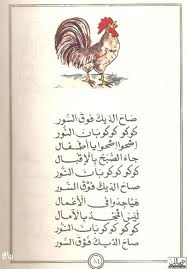 صَاحَ الدِّيكُ فَوْقَ السُّورِ
كُوكُو كُوكُو بَانَ النُّورِ
اِصْحُوا اِصْحُوا يَا أَطْفَالُ
جَاءَ الصُّبْحُ بِالإِقْبَالِ
كُوكُو كُوكُو كُوكُو بَانَ النُّورِ
صَاحَ الدِّيكُ فَوْقَ السُّورِ
هَيَّا جِدُّوا فِي الأَعْمَالِ
لَيْسَ المَجْدُ بِالآمَالِ
كُوكُو كُوكُو بَانَ النُّورِ
صَاحَ الدِّيكُ فَوْقَ السُّورِ